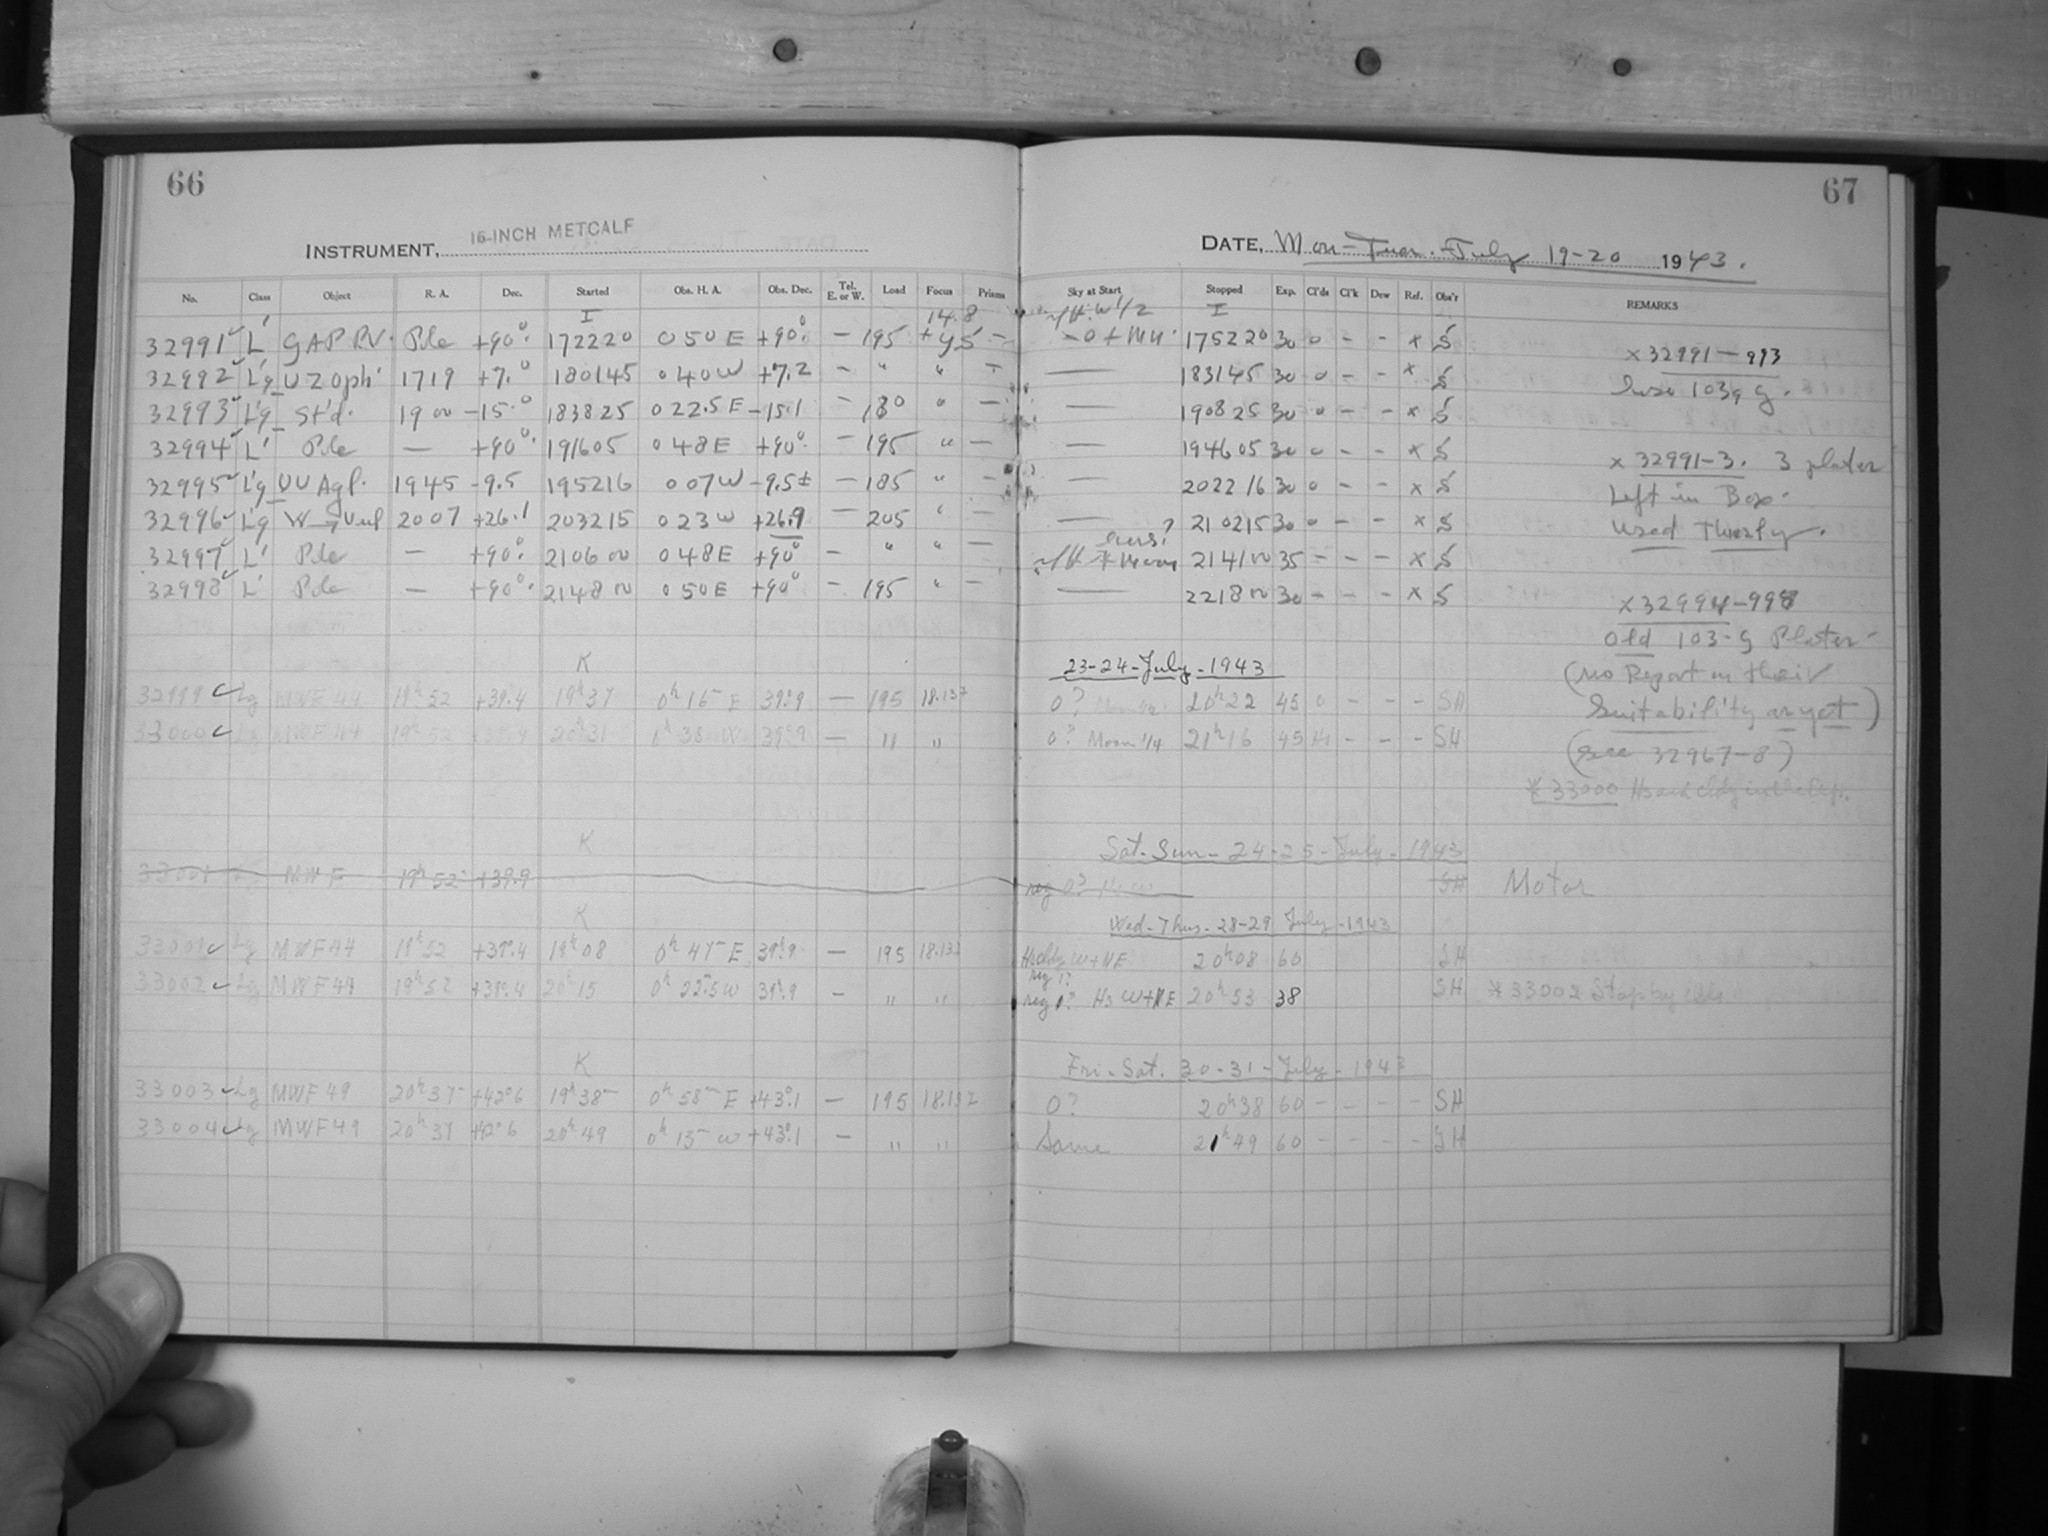 66
67
INSTRUMENT, 16-INCH METCALF
DATE, Mon-Tues. July 19-20 1943.
No. Class Object R. A. Dec. Started Obs. H. A. Obs. Dec. Tel. E. or W. Load Focus Prisms Sky at Start Stopped Exp. Cl'ds Cl'k Dew Ref. Obs'r REMARKS
I 14.8 I
32991 L' Pole +90° 172220 0 50 E +90° — 195 175220 30 0 - - x S
32992 L'g UZ Oph. 1719 +7.0 180145 0 40 W +7.2 - " " - — 183145 30 0 - - x S
32993 L'g St'd. 1900 -15.0 183825 0 22.5 E -15.1 - 180 " — — 190825 30 0 - - x S
32994 L' Pole — +90° 191605 0 48 E +90° - 195 " — — 194605 30 0 - - x S
32995 L'g UU Aql. 1945 -9.5 195216 0 07 W -9.5± - 185 " - — 202216 30 0 - - x S
32996 L'g 2007 +26.1 203215 0 23 W +26.9 — 205 " — — 210215 30 0 - - x S
32997 L' Pole — +90° 210600 0 48 E +90° - " " — Moon 214100 35 - - - x S
32998 L' Pole — +90° 214800 0 50 E +90° - 195 " - — 221800 30 - - - x S
x 32991-993
x 32991-3. 3 plates
Left in Box.
used
x 32994-998
Old 103-G Plates
(No Report on their
Suitability as yet)
(see 32967-8)
K 23-24-July-1943
32999 Lg MWF 44 19h52 +39.4 19h37 0h 15m E 39°.9 — 195 18.137 0? 20h22 45 0 - - - SH
33000 Lg MWF 44 19h52 20h31 0h 38 W 39°.9 — " " 0? Moon 1/4 21h16 45 - - - SH
* 33000
K Sat-Sun-24-25-July-1943
33001 MWF 19h52 +39.9 SH Motor
K Wed-Thus-28-29 July-1943
33001 Lg MWF 44 19h52 +39°.4 19h08 0h 47m E 39°.9 — 195 18.137 W+NE 20h08 60 SH
33002 Lg MWF 44 19h52 +39°.4 20h15 0h 22.5 W 39°.9 - " " W+NE 20h53 38 SH * 33002 Stop by
K Fri-Sat. 30-31-July-1943
33003 Lg MWF 49 20h37 +42°.6 19h38 0h 58m E +43°.1 — 195 18.137 0? 20h38 60 - - - - SH
33004 Lg MWF 49 20h37 +42°.6 20h49 0h 13m W +43°.1 — " " Same 21h49 60 - - - - SH